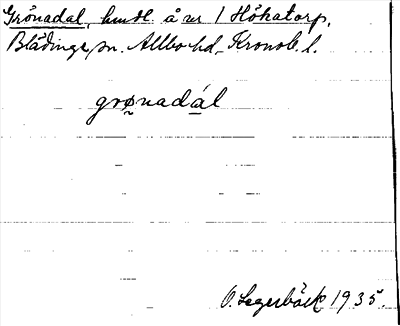 Grönadal, hmdl. å nr 1 Hökatorp,
Blädinge sn. Allbo hd, Kronob. l.
grønadál
O. Lagerbäck 1935.